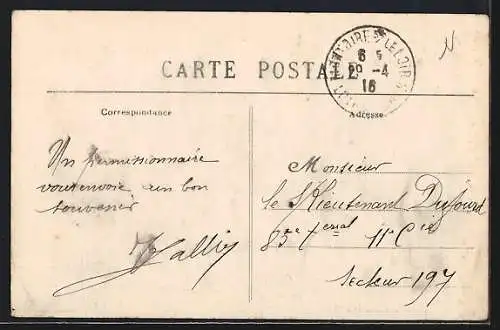 N
CARTE POSTALE
MONTOIRE S LE LOIR
6 5
29 -4
16
Correspondance
Adresse
Un permissionnaire
vous envoie un bon
souvenir
Monsieur
le S/Lieutenant Dufourd
85e terial 11e Cie
Secteur 197